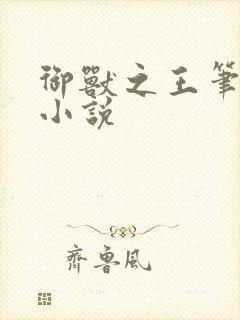 御獸之王筆
小說
齊魯風